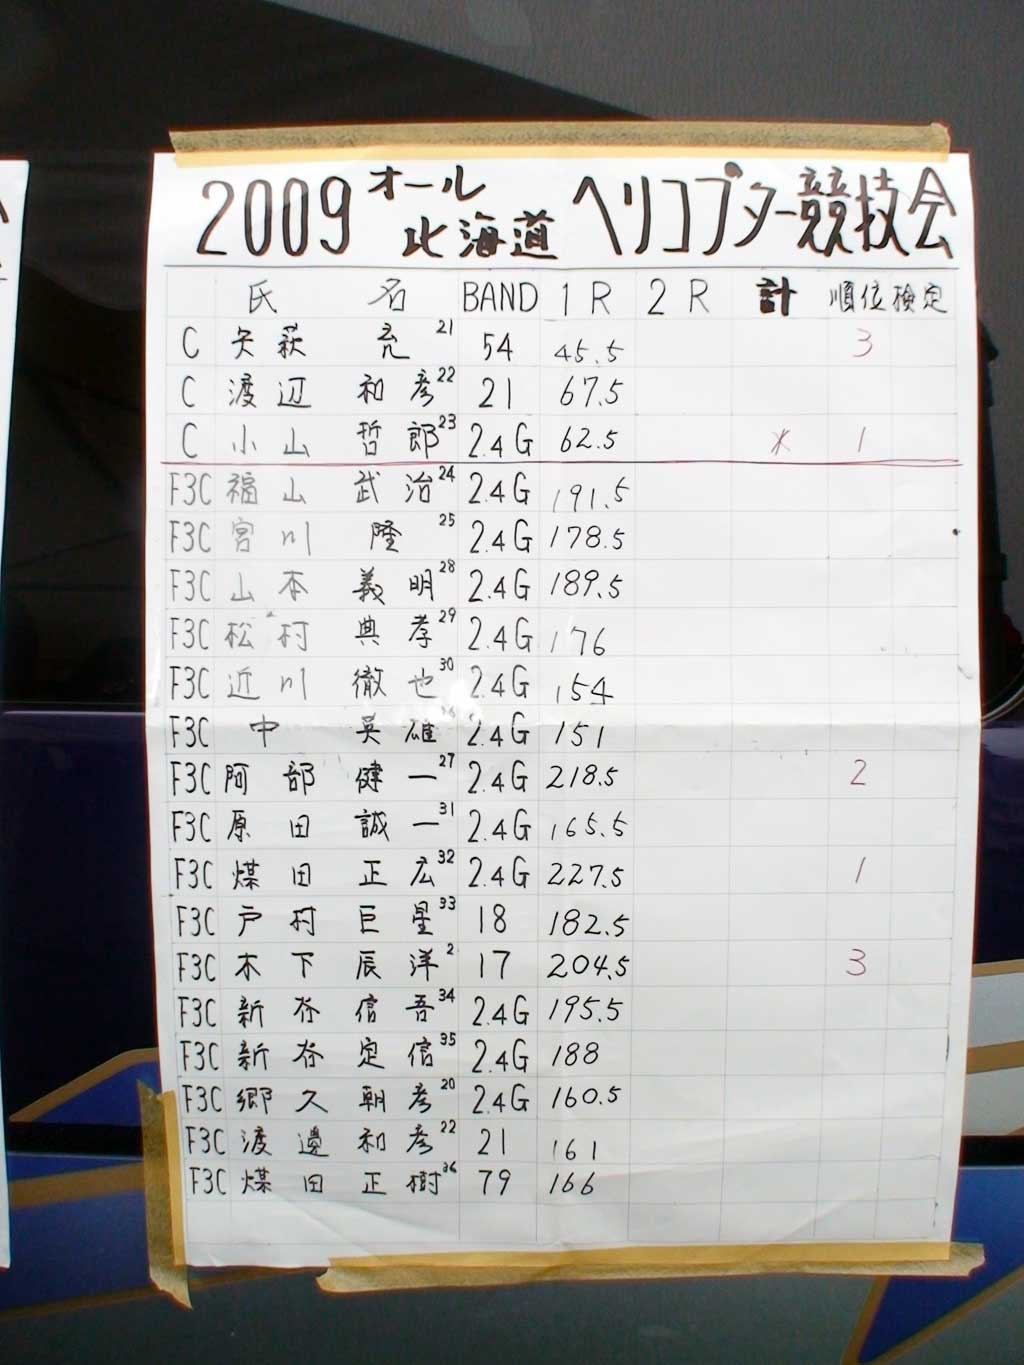 2009 オール北海道 ヘリコプター競技会
氏 名 BAND 1R 2R 計 順位 検定
C 矢萩 亮 21 54 45.5 3
C 渡辺 和彦 22 21 67.5
C 小山 哲郎 23 2.4G 62.5 * 1
F3C 福山 武治 24 2.4G 191.5
F3C 宮川 隆 25 2.4G 178.5
F3C 山本 義明 28 2.4G 189.5
F3C 松村 典孝 29 2.4G 176
F3C 近川 徹也 30 2.4G 154
F3C 中 英雄 26 2.4G 151
F3C 阿部 健一 27 2.4G 218.5 2
F3C 原田 誠一 31 2.4G 165.5
F3C 煤田 正広 32 2.4G 227.5 1
F3C 戸村 巨星 33 18 182.5
F3C 木下 辰洋 2 17 204.5 3
F3C 新谷 信吾 34 2.4G 195.5
F3C 新谷 定信 35 2.4G 188
F3C 郷久 朝彦 20 2.4G 160.5
F3C 渡邉 和彦 22 21 161
F3C 煤田 正樹 36 79 166